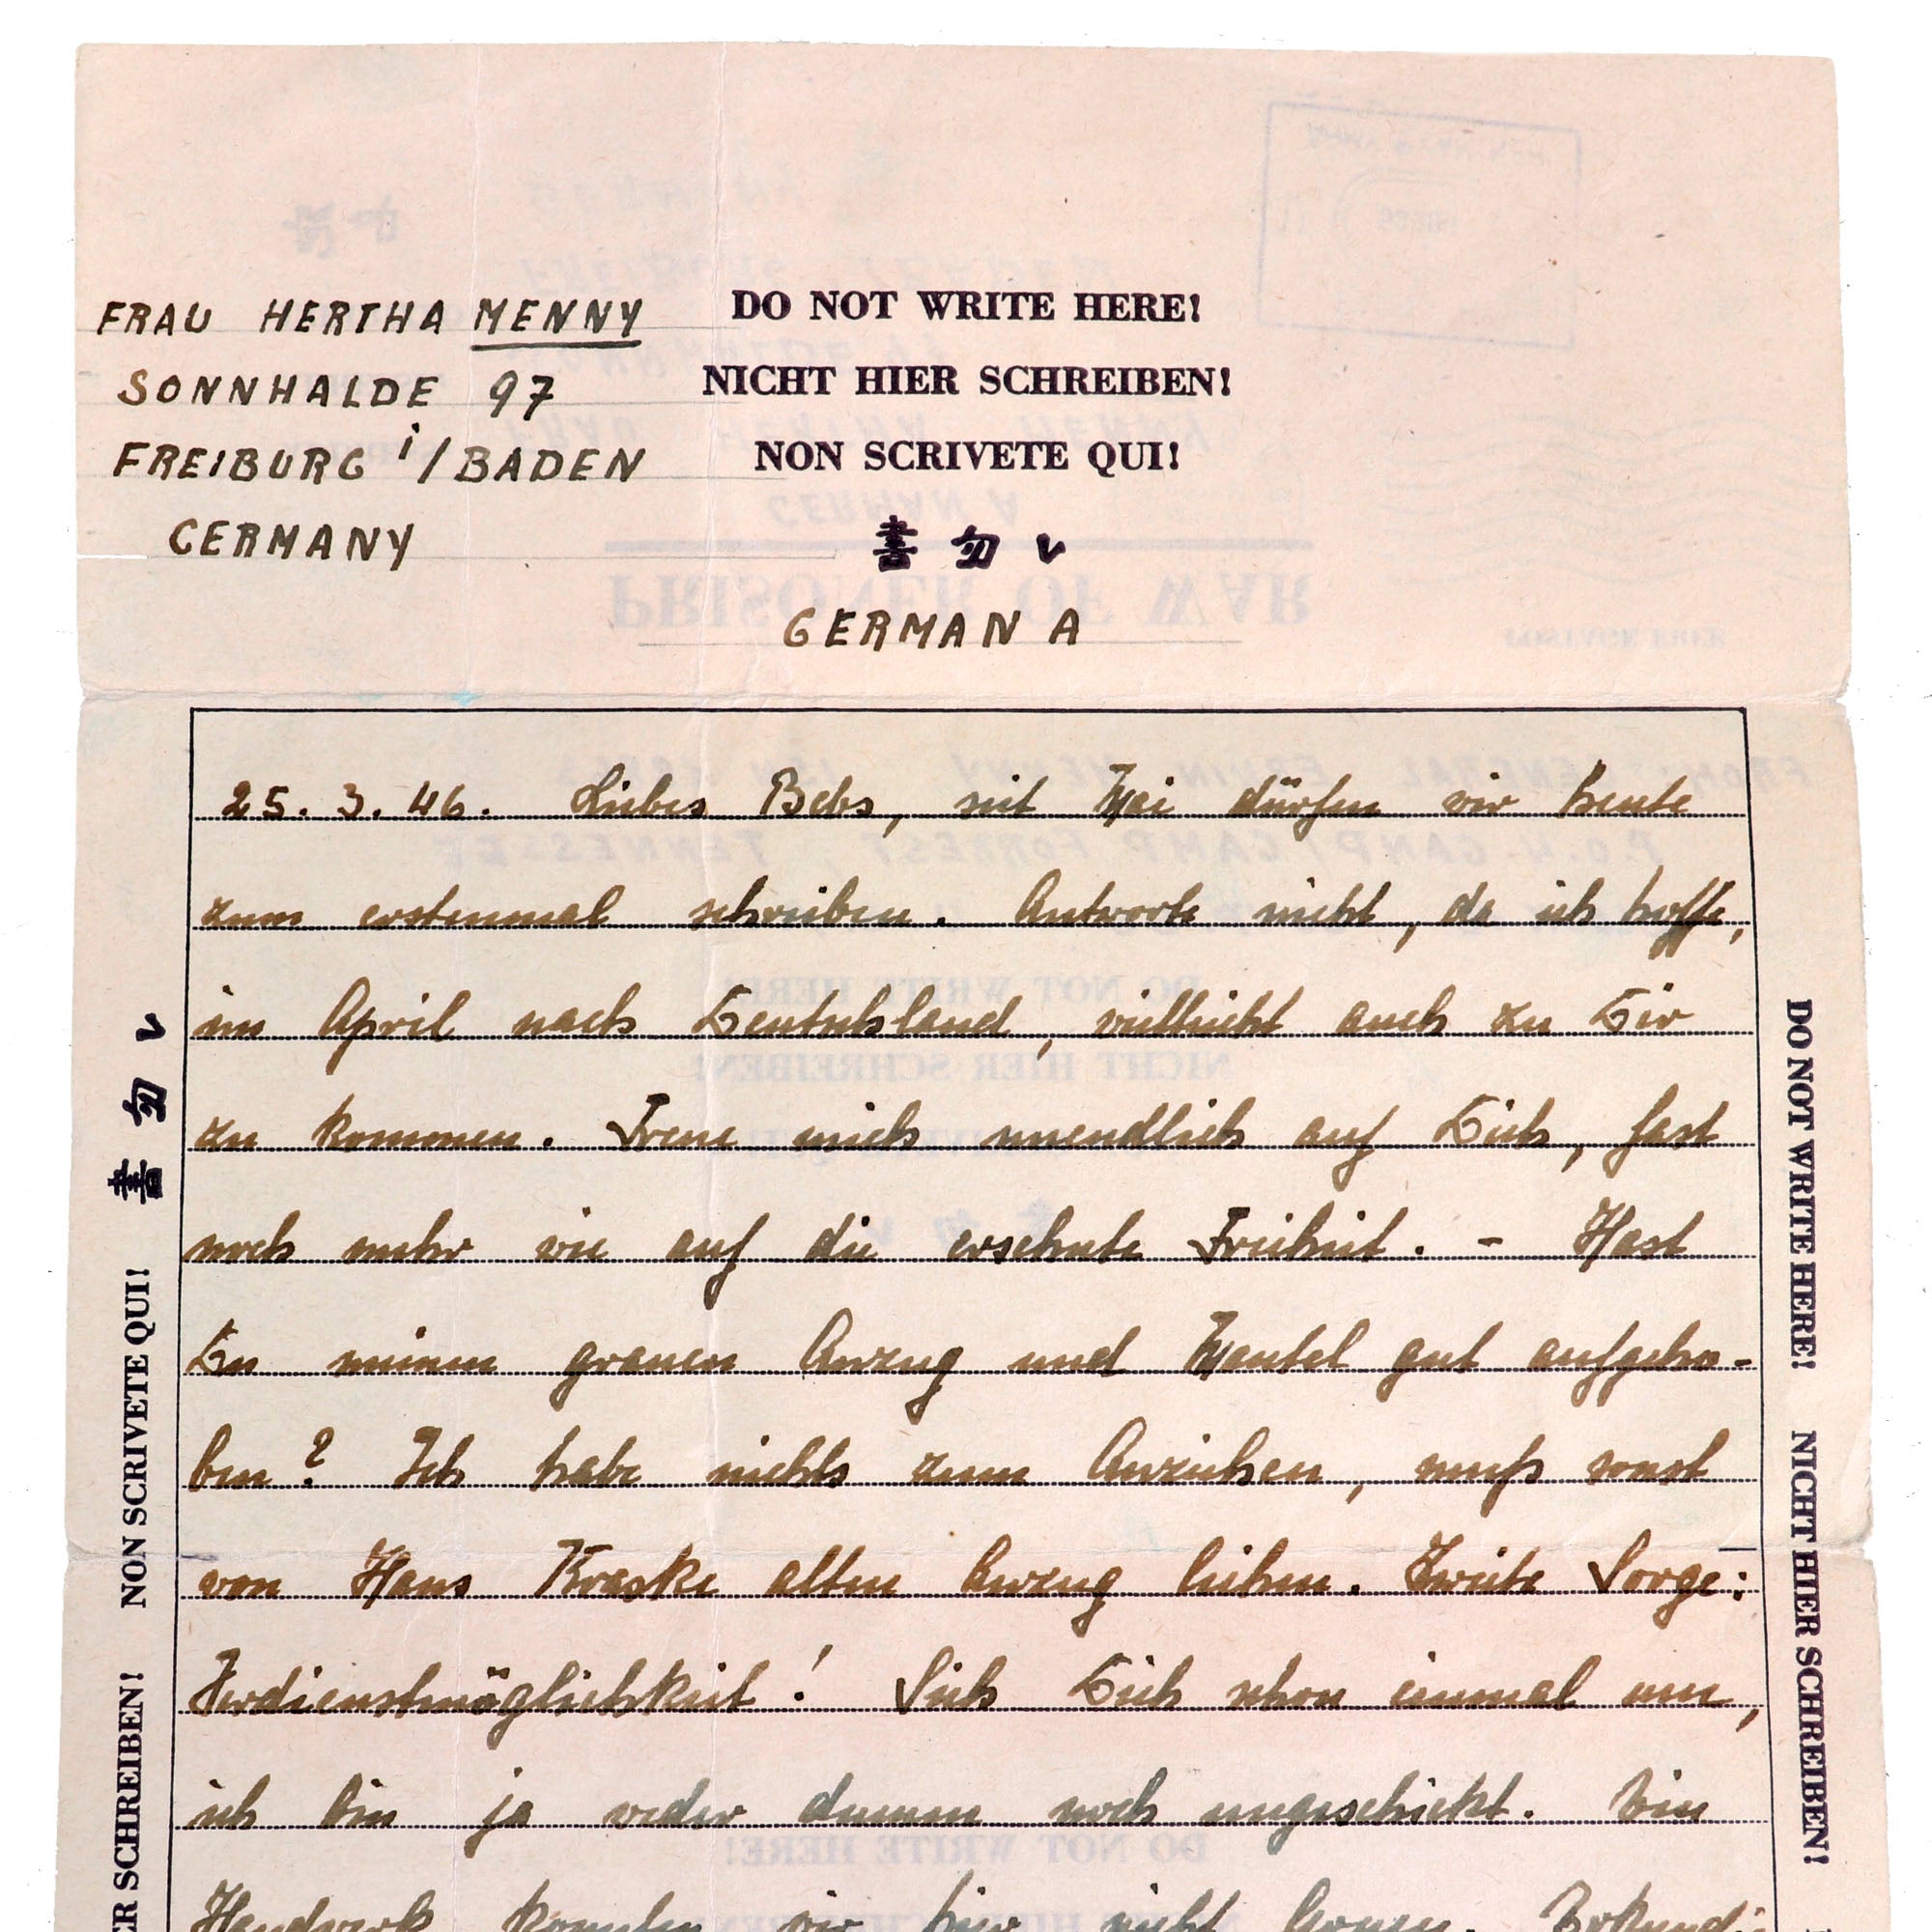 FRAU HERTHA MENNY
SONNHALDE 97
FREIBURG i/BADEN
GERMANY
DO NOT WRITE HERE!
NICHT HIER SCHREIBEN!
NON SCRIVETE QUI!
書勿ㇾ
GERMAN A
25. 3. 46. Liebes Bebs, seit Mai dürfen wir heute
zum erstenmal schreiben. Antworte nicht, da ich hoffe,
im April nach Deutschland, vielleicht auch zu Dir
zu kommen. Freue mich unendlich auf Dich, fast
noch mehr wie auf die ersehnte Freiheit. - Hast
Du meinen grauen Anzug und Mantel gut aufgeho-
ben? Ich habe nichts zum Anziehen, muß sonst
von Hans Kraske alten Anzug leihen. Zweite Sorge:
Verdienstmöglichkeit! Sieh Dich schon einmal um,
ich bin ja weder dumm noch ungeschickt. Ein
Handwerk konnten wir hier nicht lernen. Erkundi
DO NOT WRITE HERE! NICHT HIER SCHREIBEN!
ER SCHREIBEN! NON SCRIVETE QUI! 書勿ㇾ
PRISONER OF WAR
FROM: GENERAL ERWIN MENNY
P.O.W. CAMP, CAMP FORREST, TENNESSEE